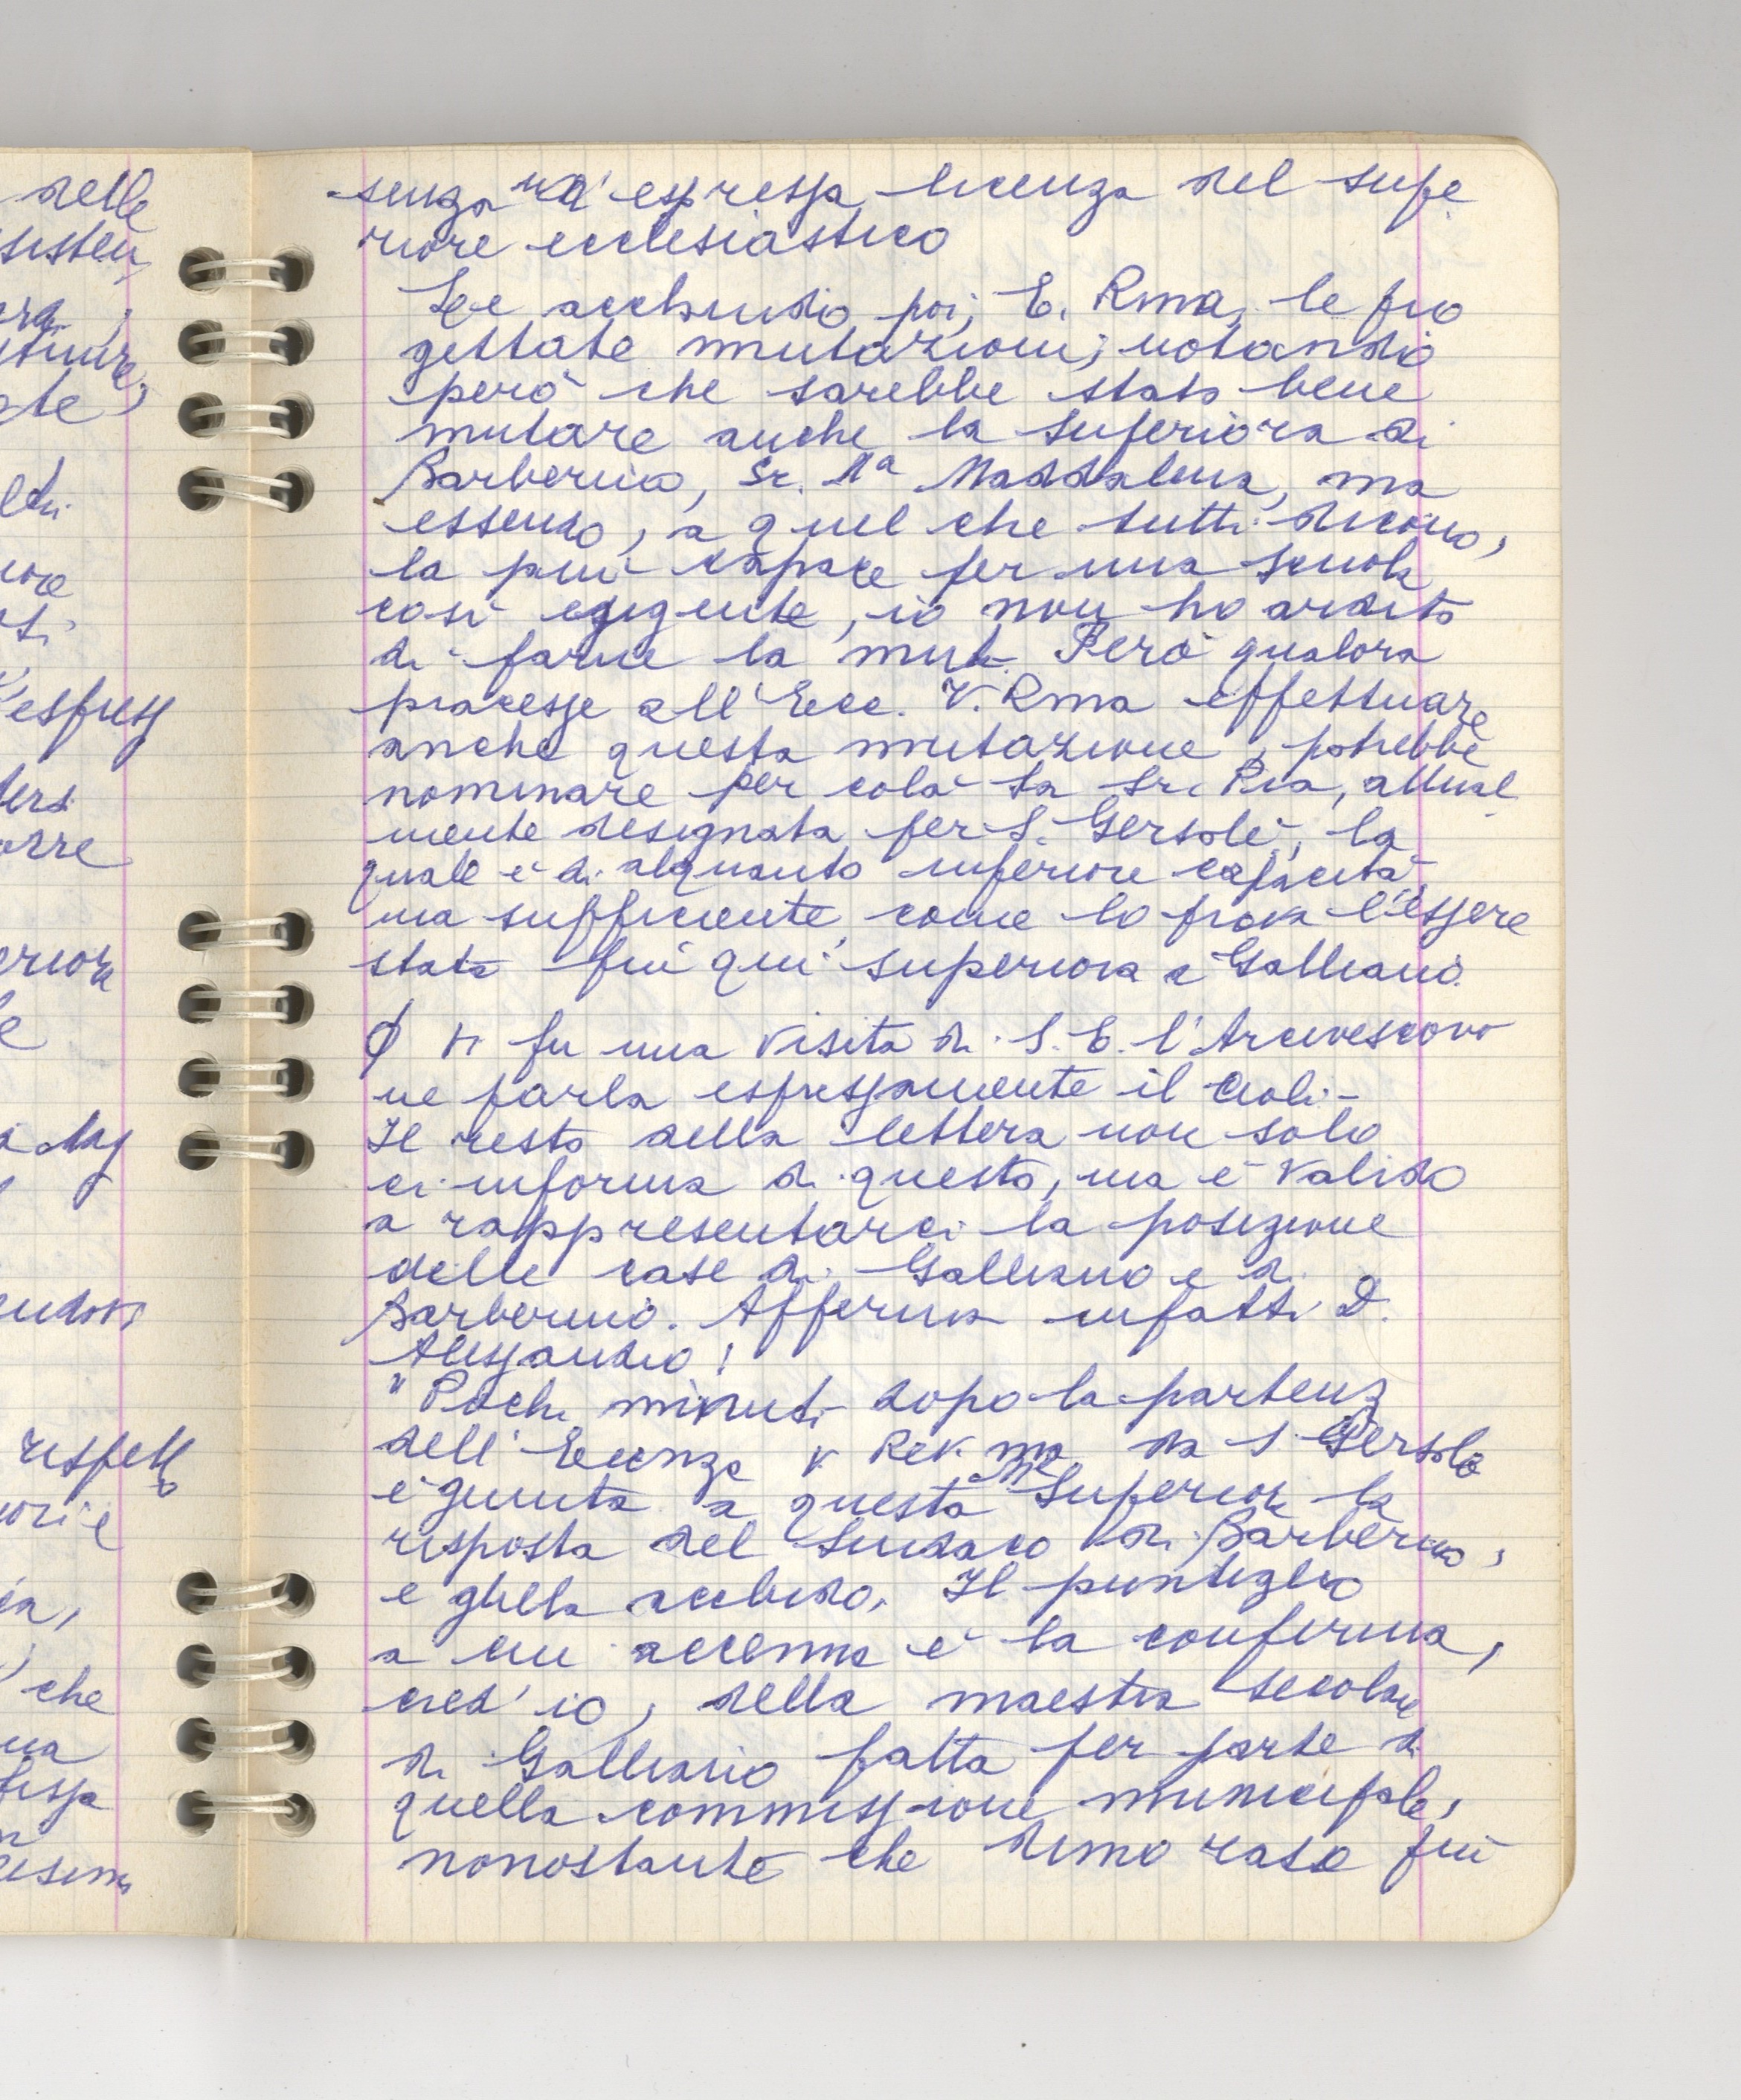 delle
espress
orre
che
senza un'espressa licenza del supe
riore ecclesiastico
Le acchiudo poi, E. Rma, le pro
gettate mutazioni; notando
però che sarebbe stato bene
mutare anche la Superiora di
Barberino, Sr. Ma Maddalena, ma
essendo, a quel che tutti dicono,
la più capace per una scuola
così esigente, io non ho ardito
di farne la mut. Però qualora
piacesse all'Ecc. V. Rma effettuare
anche questa mutazione, potrebbe
nominare per colà la Sr. Pia, attual
mente designata per S. Gersolè, la
quale è di alquanto inferiore capacità
ma sufficiente, come lo prova l'essere
stata fin qui superiora a Galliano.
Vi fu una visita di S. E. l'Arcivescovo
ne parla espressamente il Cioli -
Il resto della lettera non solo
ci informa di questo, ma è valido
a rappresentarci la posizione
delle case di Galliano e di
Barberino. Afferma infatti D.
Alessandro:
"Pochi minuti dopo la partenza
dell'Eccenza V Rev. ma da S. Gersolè
è giunta a questa Superiora la
risposta del Sindaco di Barberino,
e gliela acchiudo. Il puntiglio
a cui accenna è la conferma,
cred'io, della maestra secolare
di Galliano fatta per parte di
quella commissione municipale,
nonostante che